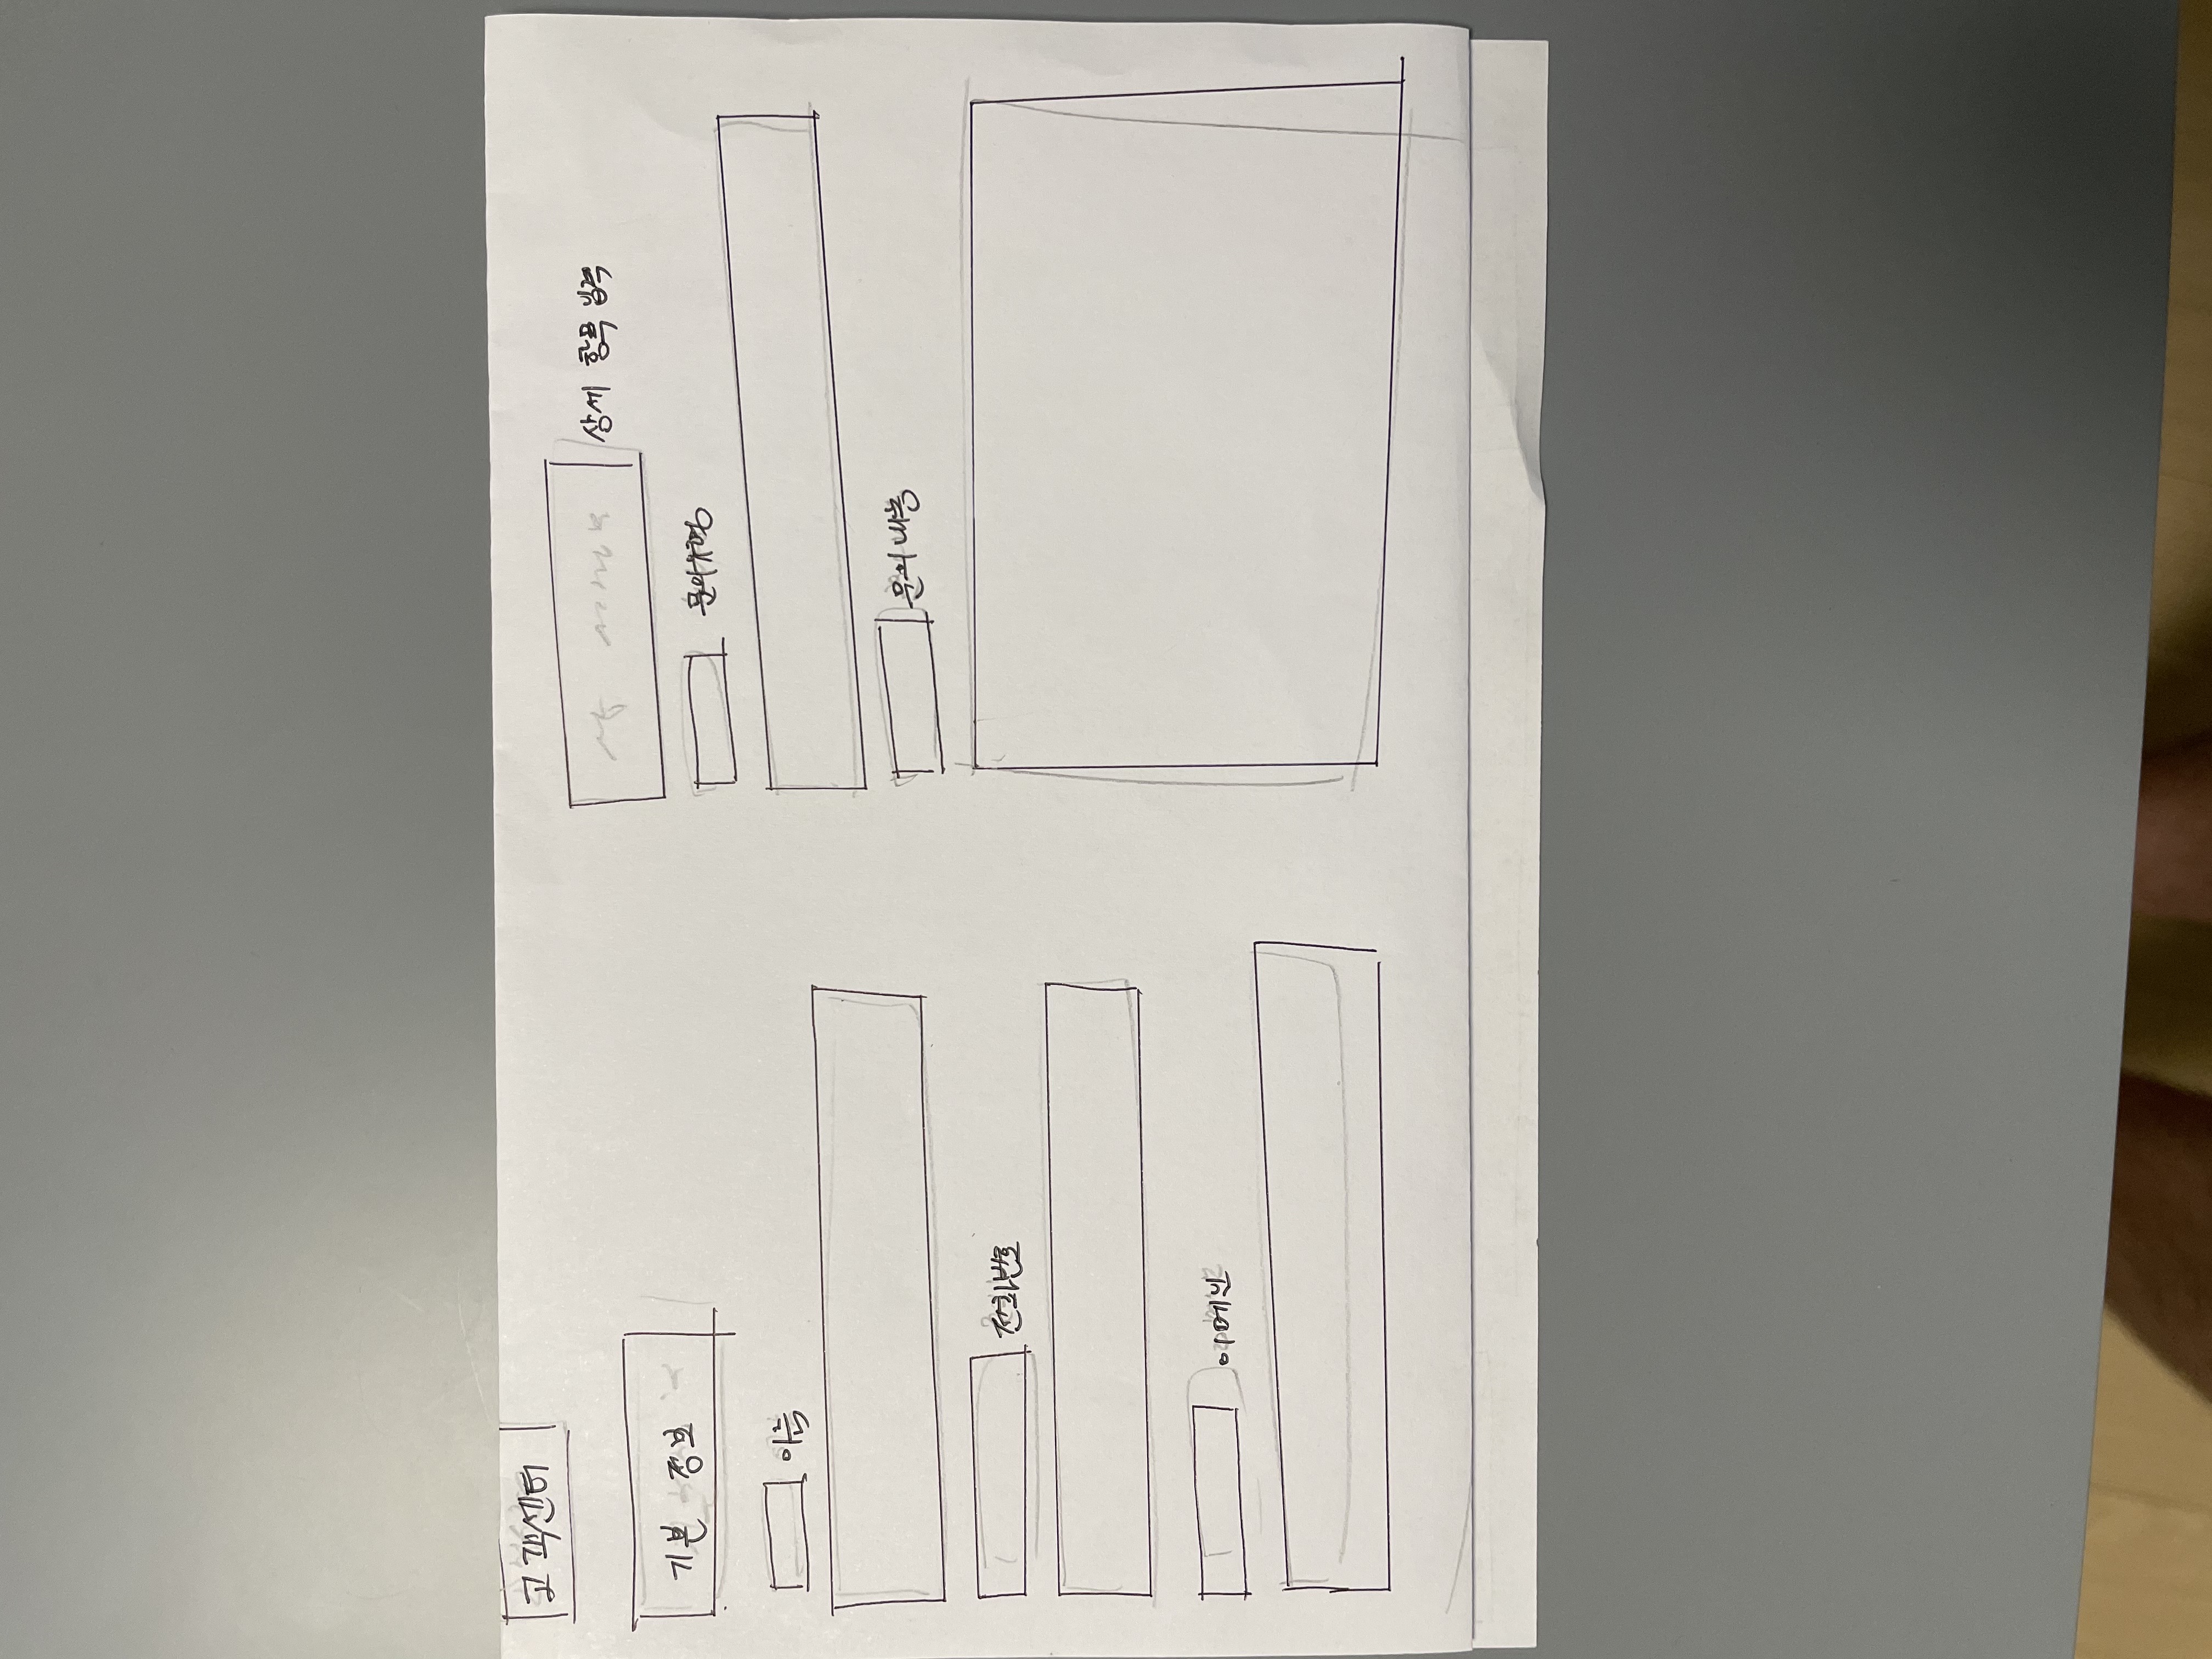 고객센터
기본 정보
이름
전화번호
이메일
상세 항목 입력
문의유형
문의내용